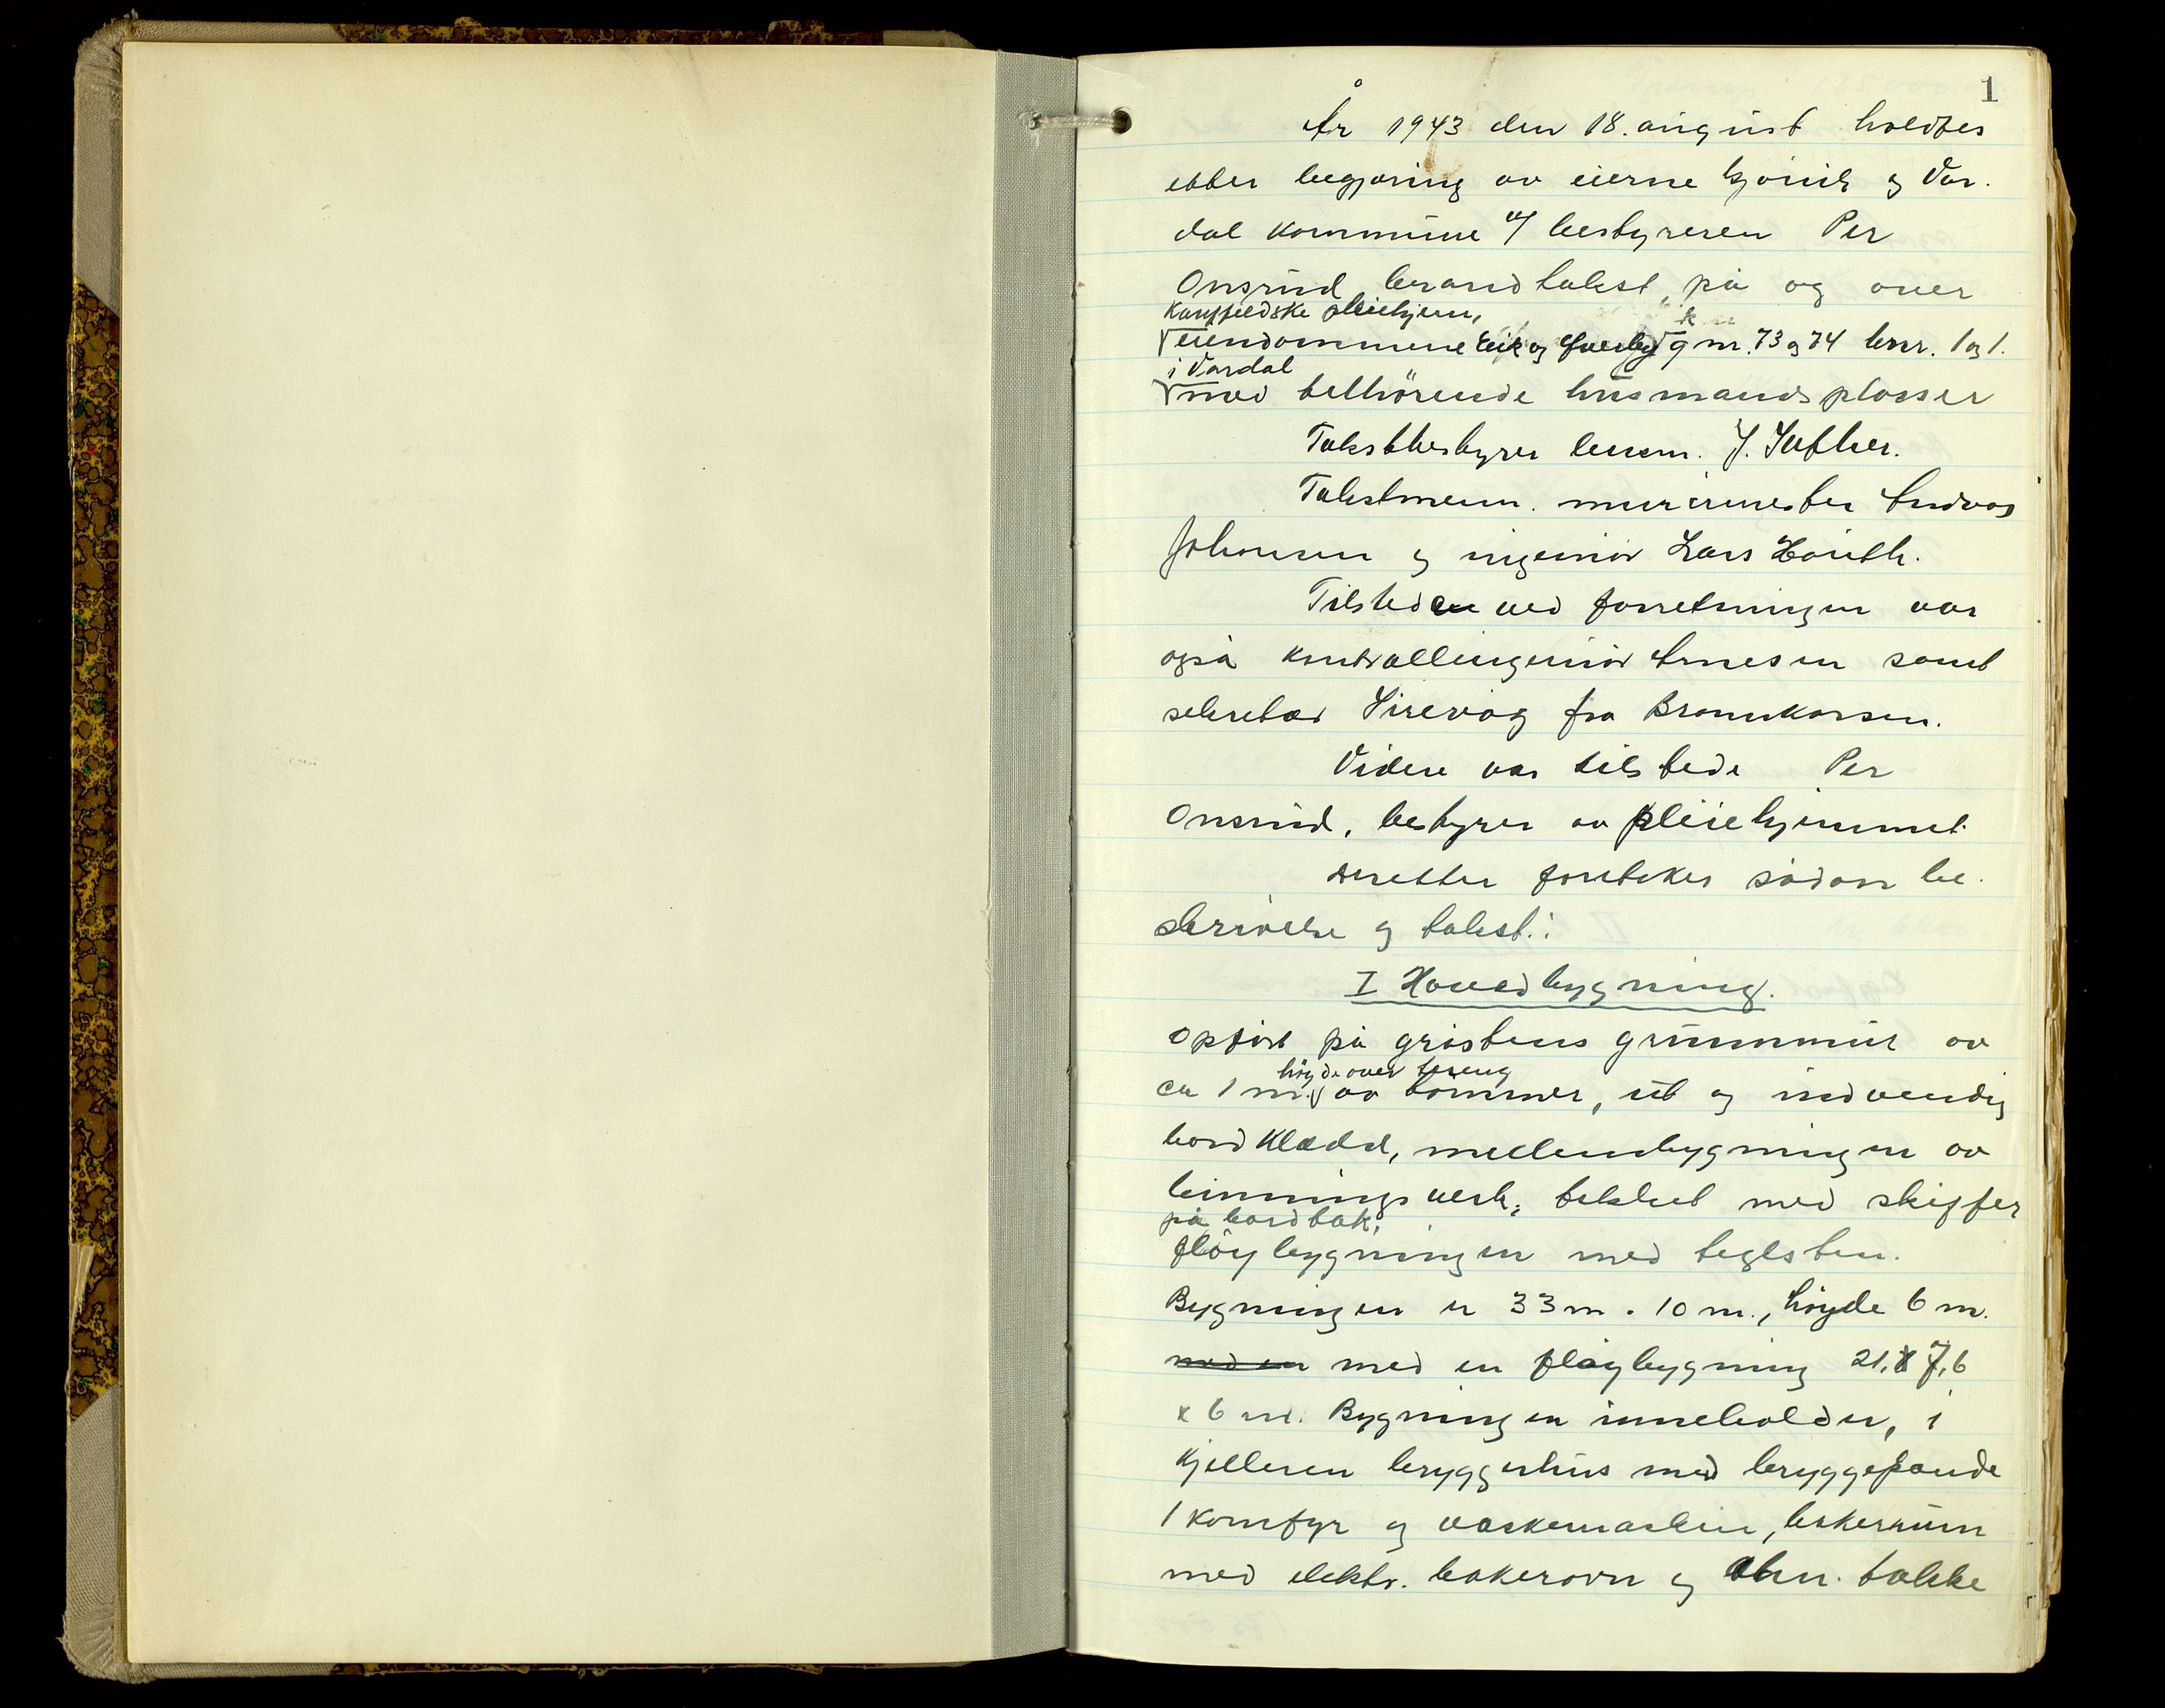 1
År 1943 den 18. august holdtes
etter begjæring av eierne Gjøvik og Var-
dal kommune v/ bestyreren Per
Onsrud brandtakst på og over
Kauffeldske pleiehjem,
eiendommene Eik og Øverby gnr. 73 og 74 bnr. 1 og 1.
i Vardal
med tellhörende husmandsplasser
Takstbestyrer lensm. J. Sæther.
Takstmenn. murermester Andreas
Johansen og ingeniør Lars Hauth.
Tilstede ved forretningen var
også kontrollingeniør Arnesen samt
sekretær Sirevåg fra Brannkassen.
Videre var tilstede Per
Onsrud, bestyrer av pleiehjemmet.
Deretter foretokes sådan be-
skrivelse og takst:
I Hovedbygning.
Opført på gråstens grunnmur av
høyde over tereng
ca 1 m. av tømmer, ut og indvendig
bordkledd, mellembygningen av
binningsverk, tekket med skiffer
på bordtak,
fløybygningen med teglsten.
Bygningen er 33 m. 10 m., høyde 6 m.
med en med en fløybygning 21. x 7,6
x 6 m. Bygningen inneholder, i
kjelleren bryggerhus med bryggepande
1 komfyr og vaskemaskin, bakerum
med elektr. bakerovn og alm. takke